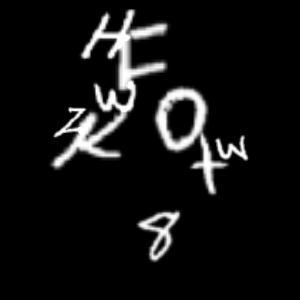 H E
W
Z K O
t W
8